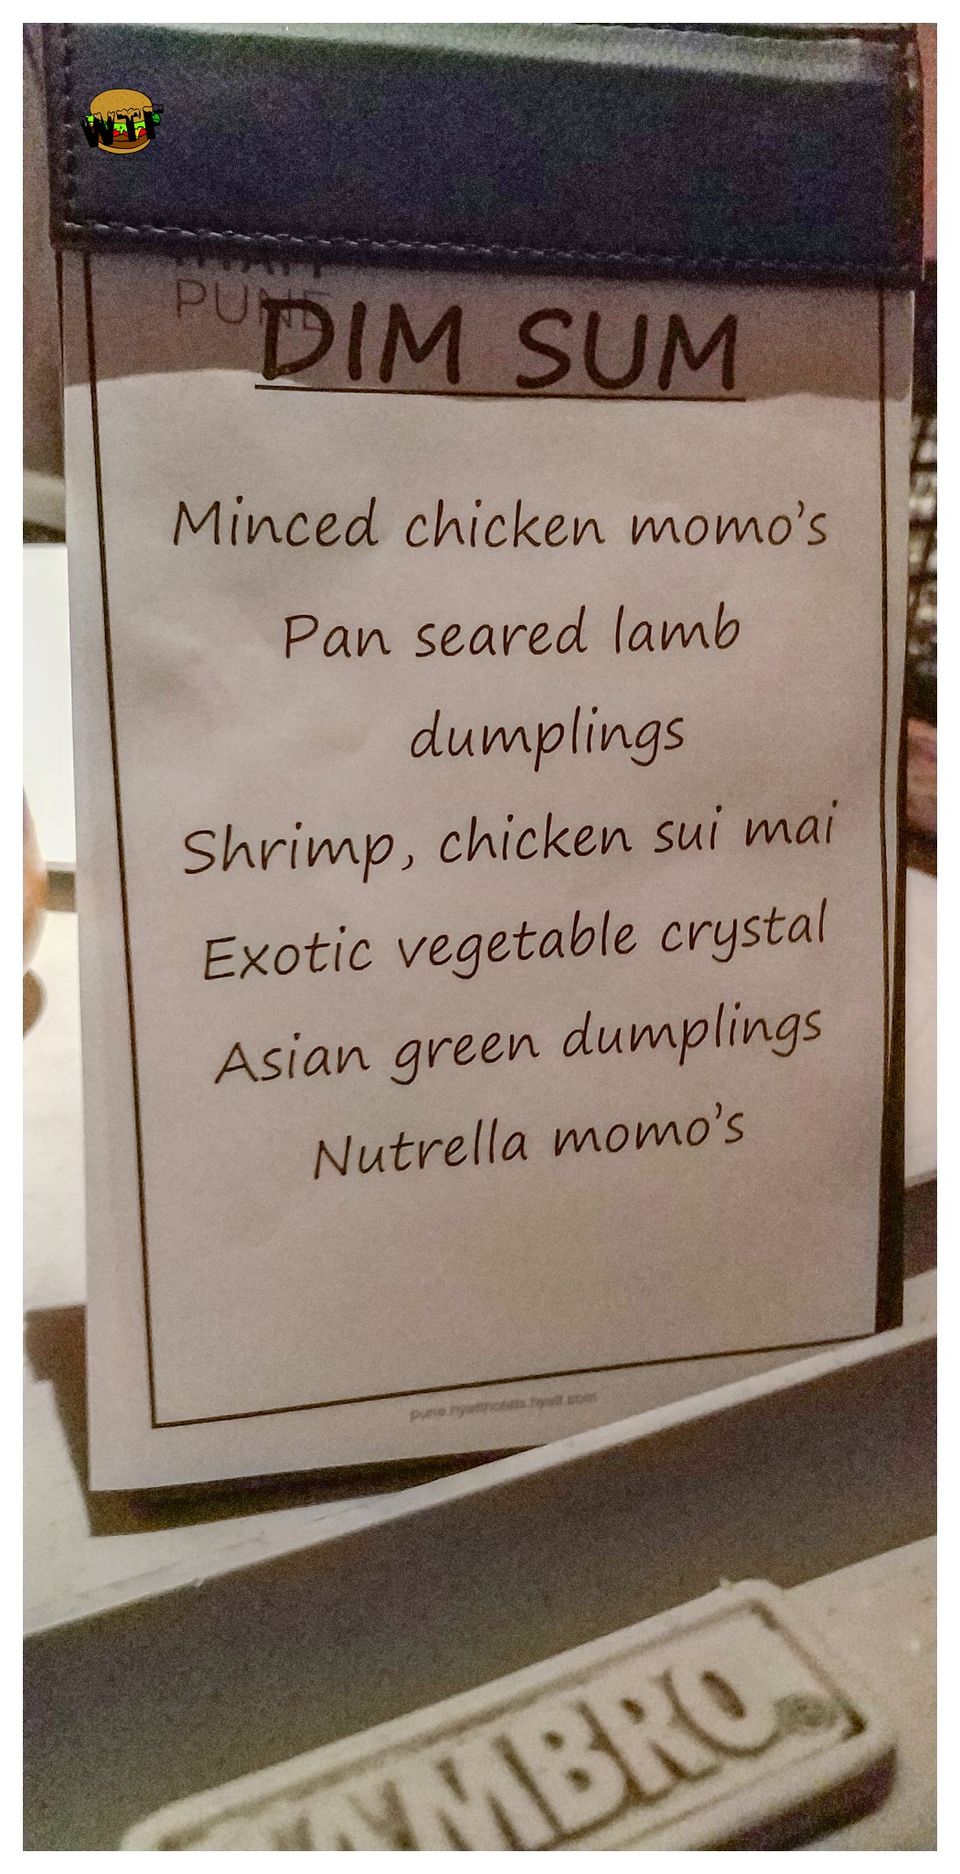 WTF
HYATT
PUNE
DIM SUM
Minced chicken momo's
Pan seared lamb
dumplings
Shrimp, chicken sui mai
Exotic vegetable crystal
Asian green dumplings
Nutrella momo's
pune.hyatthotels.hyatt.com
CAMBRO®